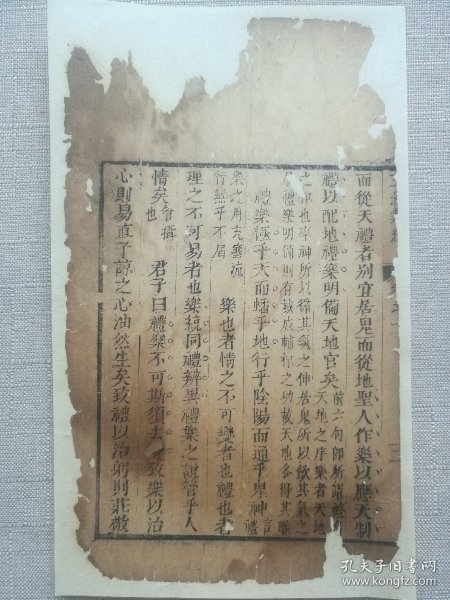 而從天禮者別宜居鬼而從地聖人作樂以應天制
禮以配地禮樂明備天地官矣前六句即所謂禮者
天地之序樂者天地
之也率神所以循其氣之伸居鬼所以斂其氣之
禮樂明備則有裁成輔相之功故天地各得其職
禮樂極乎天而蟠乎地行乎陰陽而通乎鬼神言禮
樂之用充塞流
行無乎不屆 樂也者情之不可變者也禮也者
理之不可易者也樂統同禮辨異禮樂之說管乎人
情矣管攝
也 君子曰禮樂不可斯須去身致樂以治
心則易直子諒之心油然生矣致禮以治躬則莊敬
孔夫子旧书网
www.kongfz.com